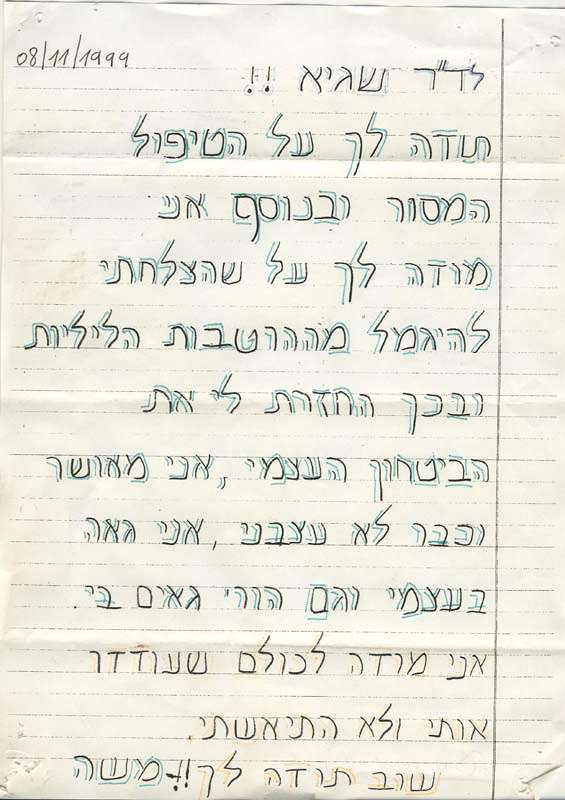 08/11/1999
לד"ר שגיא !!
תודה לך על הטיפול
המסור ובנוסף אני
מודה לך על שהצלחתי
להיגמל מההרטבות הליליות
ובכך החזרת לי את
הביטחון העצמי, אני מאושר
וכבר לא עצבני, אני גאה
בעצמי וגם הורי גאים בי.
אני מודה לכולם שעודדו
אותי ולא התיאשתי.
שוב תודה לך!! - משה